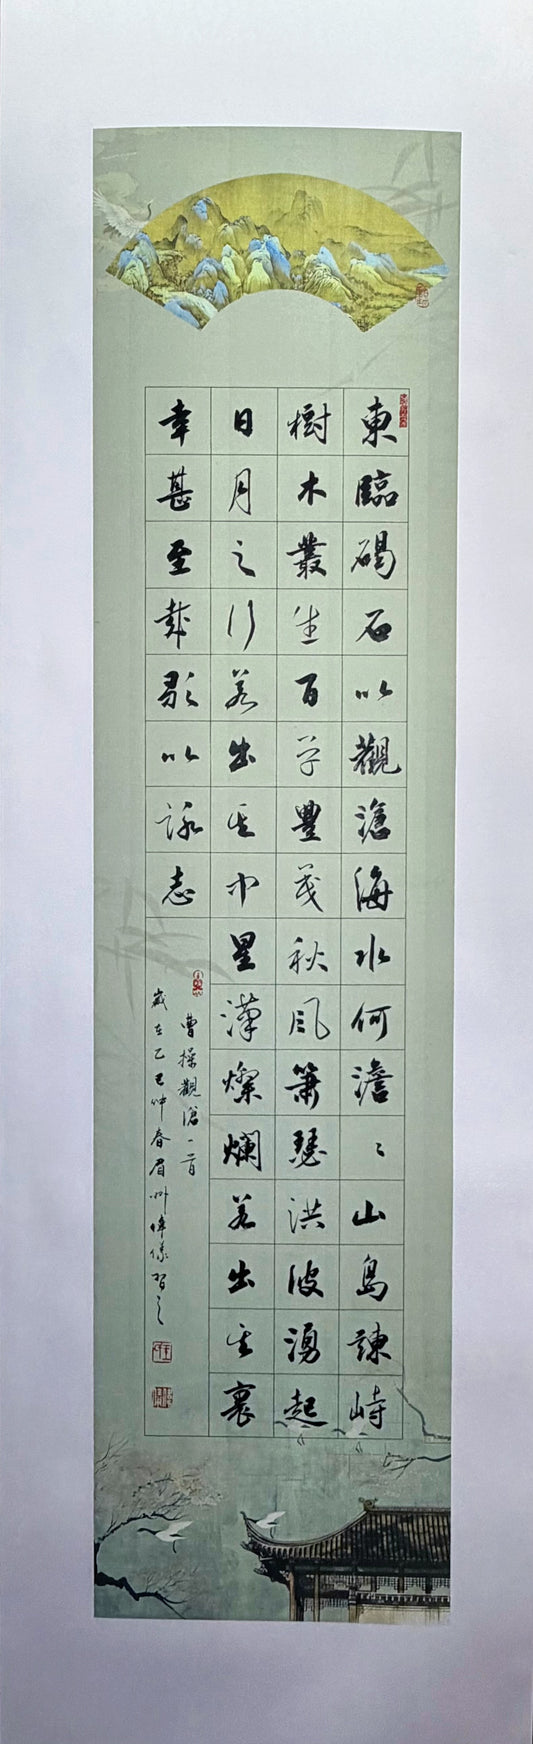 東臨碣石以觀滄海水何澹〻山島竦峙
樹木叢生百草豐茂秋風蕭瑟洪波湧起
日月之行若出其中星漢燦爛若出其裏
幸甚至哉歌以詠志
曹操觀滄一首
歲在乙巳仲春眉州偉儀習之